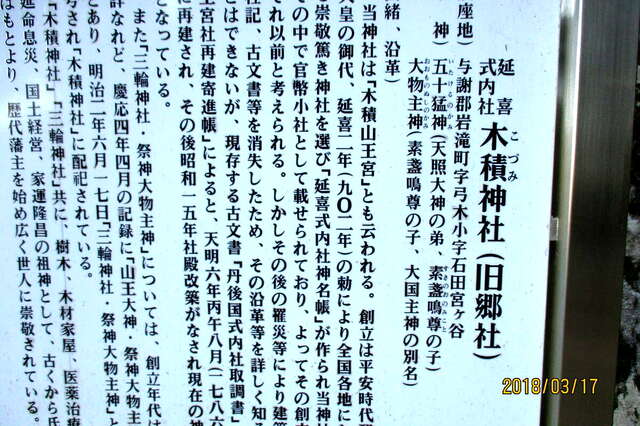 延喜
式内社 木積神社(旧郷社)
こづみ
座地) 与謝郡岩滝町字弓木小字石田宮ヶ谷
神) 五十猛神(天照大神の弟、素盞鳴尊の子)
いたけるのかみ
すさのおのみこと
大物主神(素盞鳴尊の子、大国主神の別名)
おおものぬしのかみ
緒、沿革)
当神社は『木積山王宮』とも云われる。創立は平安時代
天皇の御代、延喜二年(九〇二年)の勅により全国各地に
る崇敬篤き神社を選び『延喜式内社神名帳』が作られ当神社
その中で官幣小社として載せられており、よってその創
それ以前と考えられる。しかしその後の罹災等により建
社記、古文書等を消失したため、その沿革等を詳しく知る
とはできないが、現存する古文書『丹後国式内社取調書』
王宮社再建寄進帳』によると、天明六年丙午八月(一七八六
に再建され、その後昭和一五年社殿改築がなされ現在の神
となっている。
また『三輪神社・祭神大物主神』については、創立年代は
詳なれど、慶応四年四月の記録に『山王大神・祭神大物主
とあり、明治二年六月一七日『三輪神社・祭神大物主神』と
され『木積神社』に配祀されている。
『木積神社』『三輪神社』共に、樹木・木材家屋、医薬治療
延命息災、国土経営、家運隆昌の祖神として、古くから氏
はもとより、歴代藩主を始め広く世人に崇敬されている。
2018/03/17